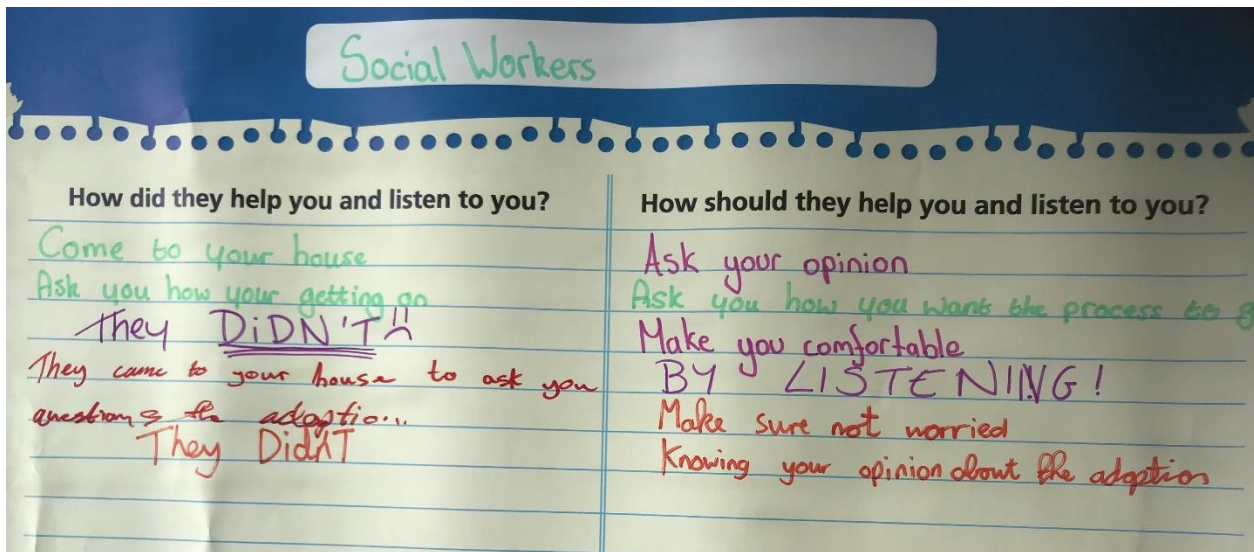 Social Workers
How did they help you and listen to you?
Come to your house
Ask you how your getting on
They DiDN'T
They came to your house to ask you
questions the adoptio...
They DidnT
How should they help you and listen to you?
Ask your opinion
Ask you how you want the process to
Make you comfortable
BY LISTENING!
Make sure not worried
Knowing your opinion about the adoption